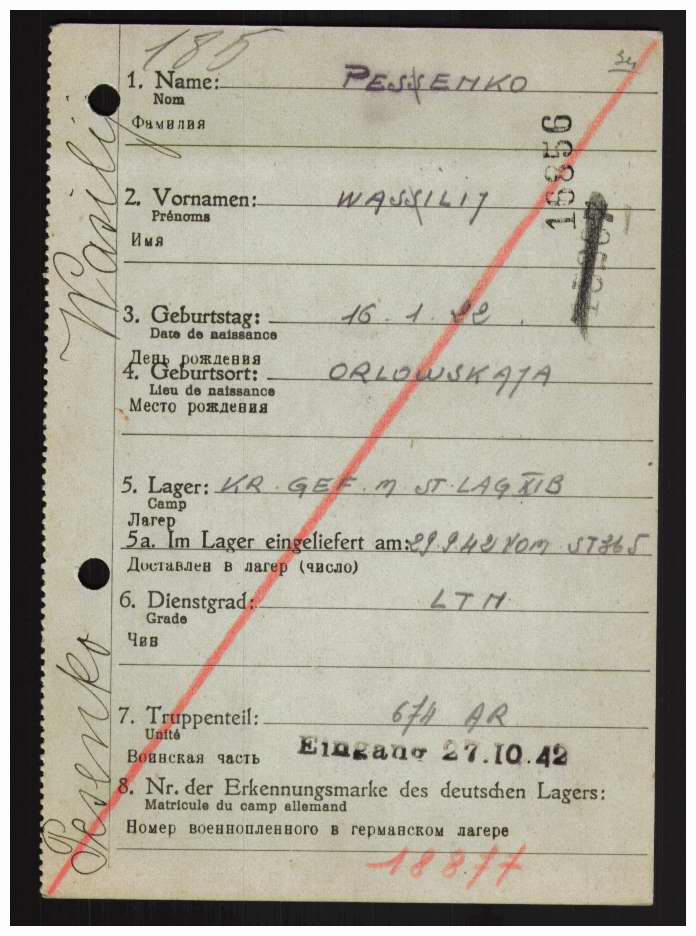 185
1. Name: PESSEMKO
Nom
Фамилия
16856
2. Vornamen: WASSILIJ
Prénoms
Имя
3. Geburtstag: 16. 1. 22.
Date de naissance
День рождения
4. Geburtsort: ORLOWSKAJA
Lieu de naissance
Место рождения
5. Lager: KR. GEF. M ST. LAG XIB
Camp
Лагер
5a. Im Lager eingeliefert am: 29.9.42 VOM ST 365
Доставлен в лагер (число)
6. Dienstgrad: LTN
Grade
Чин
7. Truppenteil: 674 AR
Unité
Воинская часть
Eingang 27.10.42
8. Nr. der Erkennungsmarke des deutschen Lagers:
Matricule du camp allemand
Номер военнопленного в германском лагере
18877
Pesenko Wasilij